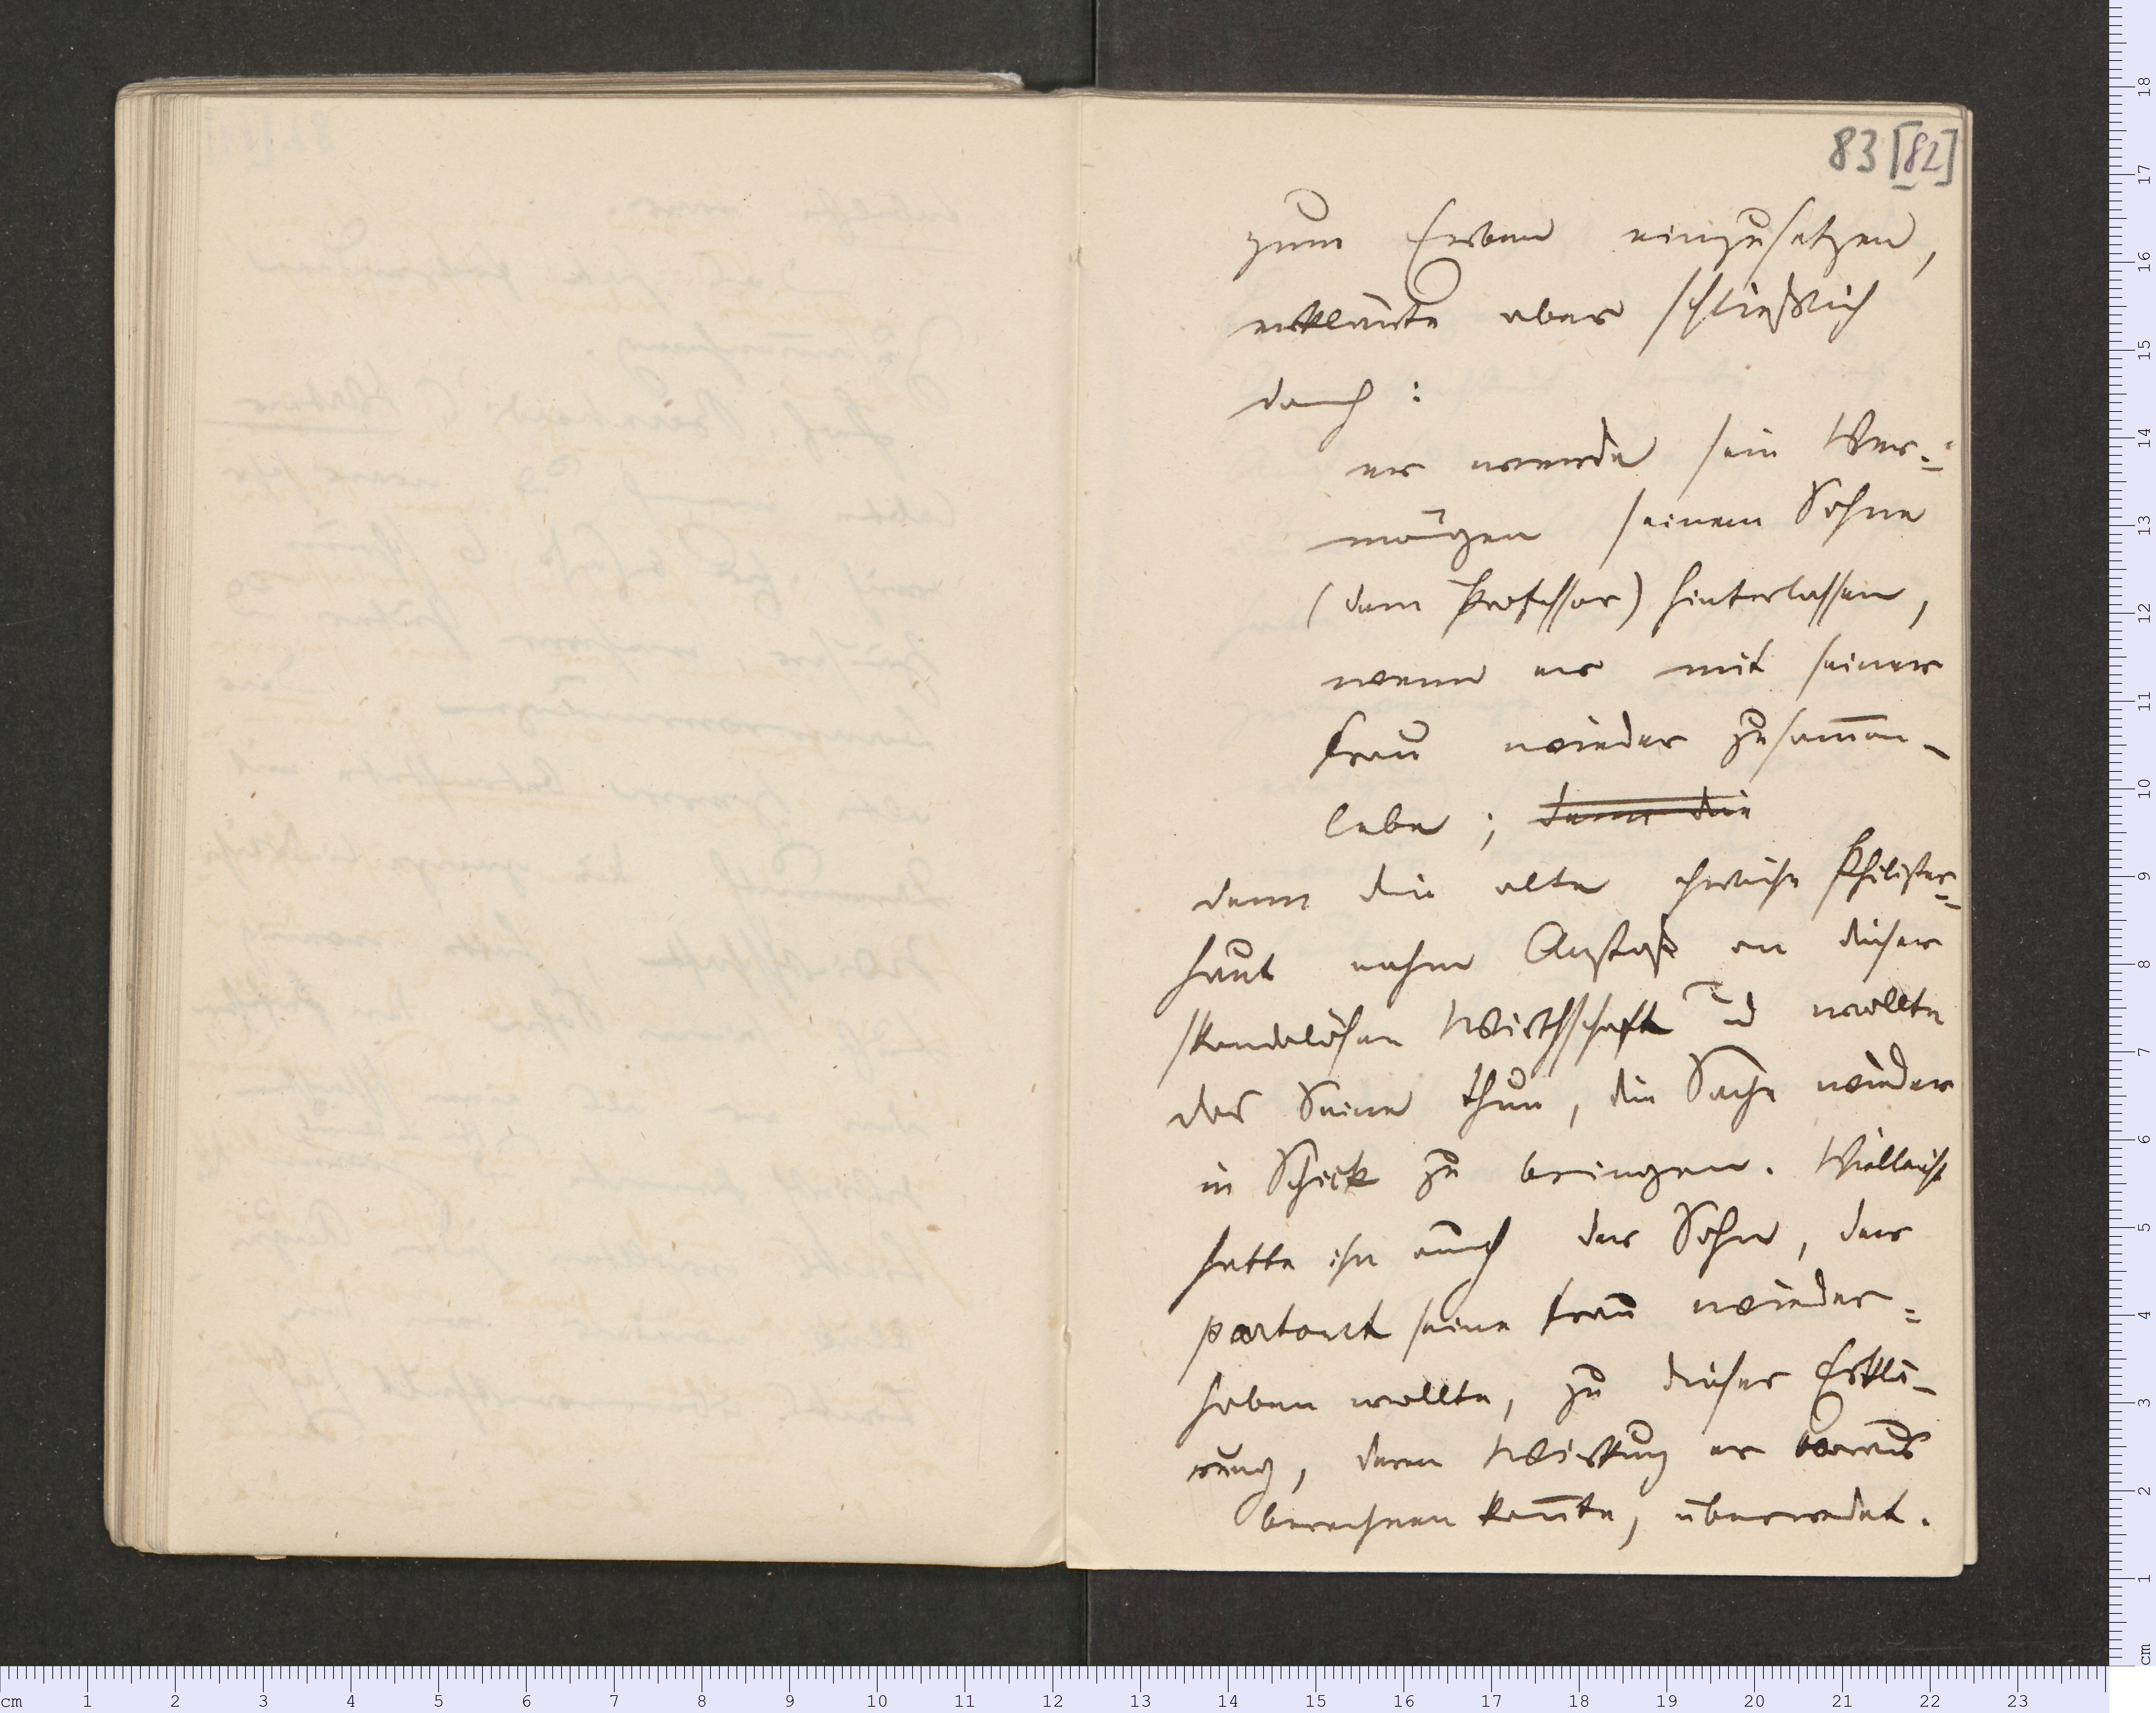 83 [82]
zum Erben einzusetzen,
erklärte aber schließlich
doch:
er werde sein Ver-
mögen seinem Sohne
(dem Professor) hinterlassen,
wenn er mit seiner
Frau wieder zusam̄en-
lebe; denn die
denn die alte ehrliche Philister-
haut nahm Anstoß an dieser
skandalösen Wirthschaft und wollte
das Seine thun, die Sache wieder
in Schick zu bringen. Vielleicht
hatte ihn auch der Sohn, der
partout seine Frau wieder-
haben wollte, zu dieser Erklä-
rung, deren Wirkung er voraus
berechnen kon̄te, überredet.